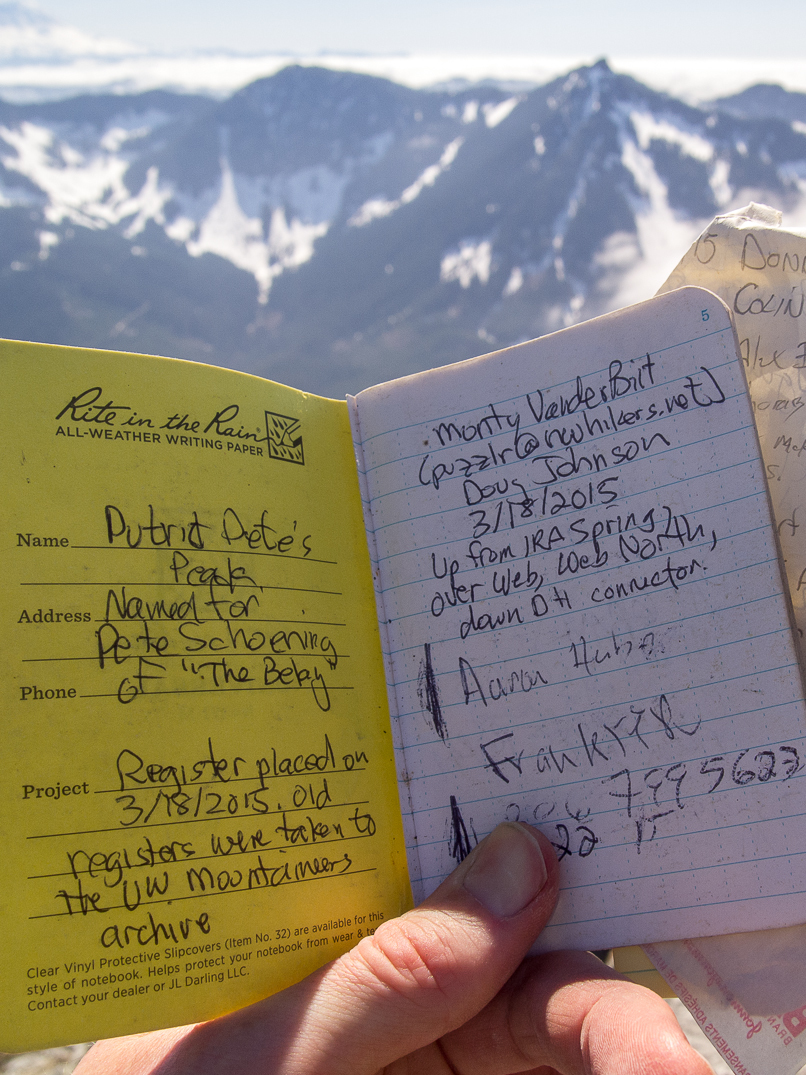 Rite in the Rain
ALL-WEATHER WRITING PAPER
Name Putrid Pete's
Peak
Address Named for
Pete Schoening
Phone of "The Belay"
Project Register placed on
3/18/2015. Old
registers were taken to
the UW Mountaineers
archive
Clear Vinyl Protective Slipcovers (Item No. 32) are available for this
style of notebook. Helps protect your notebook from wear &
Contact your dealer or JL Darling LLC.
5
Monty VanderBilt
(puzzlr@nwhikers.net)
Doug Johnson
3/18/2015
Up from IRA Spring,
over Web, Web North,
down DH connector.
Aaron
Frank
7995623
22 15
15
COLIN
Alex